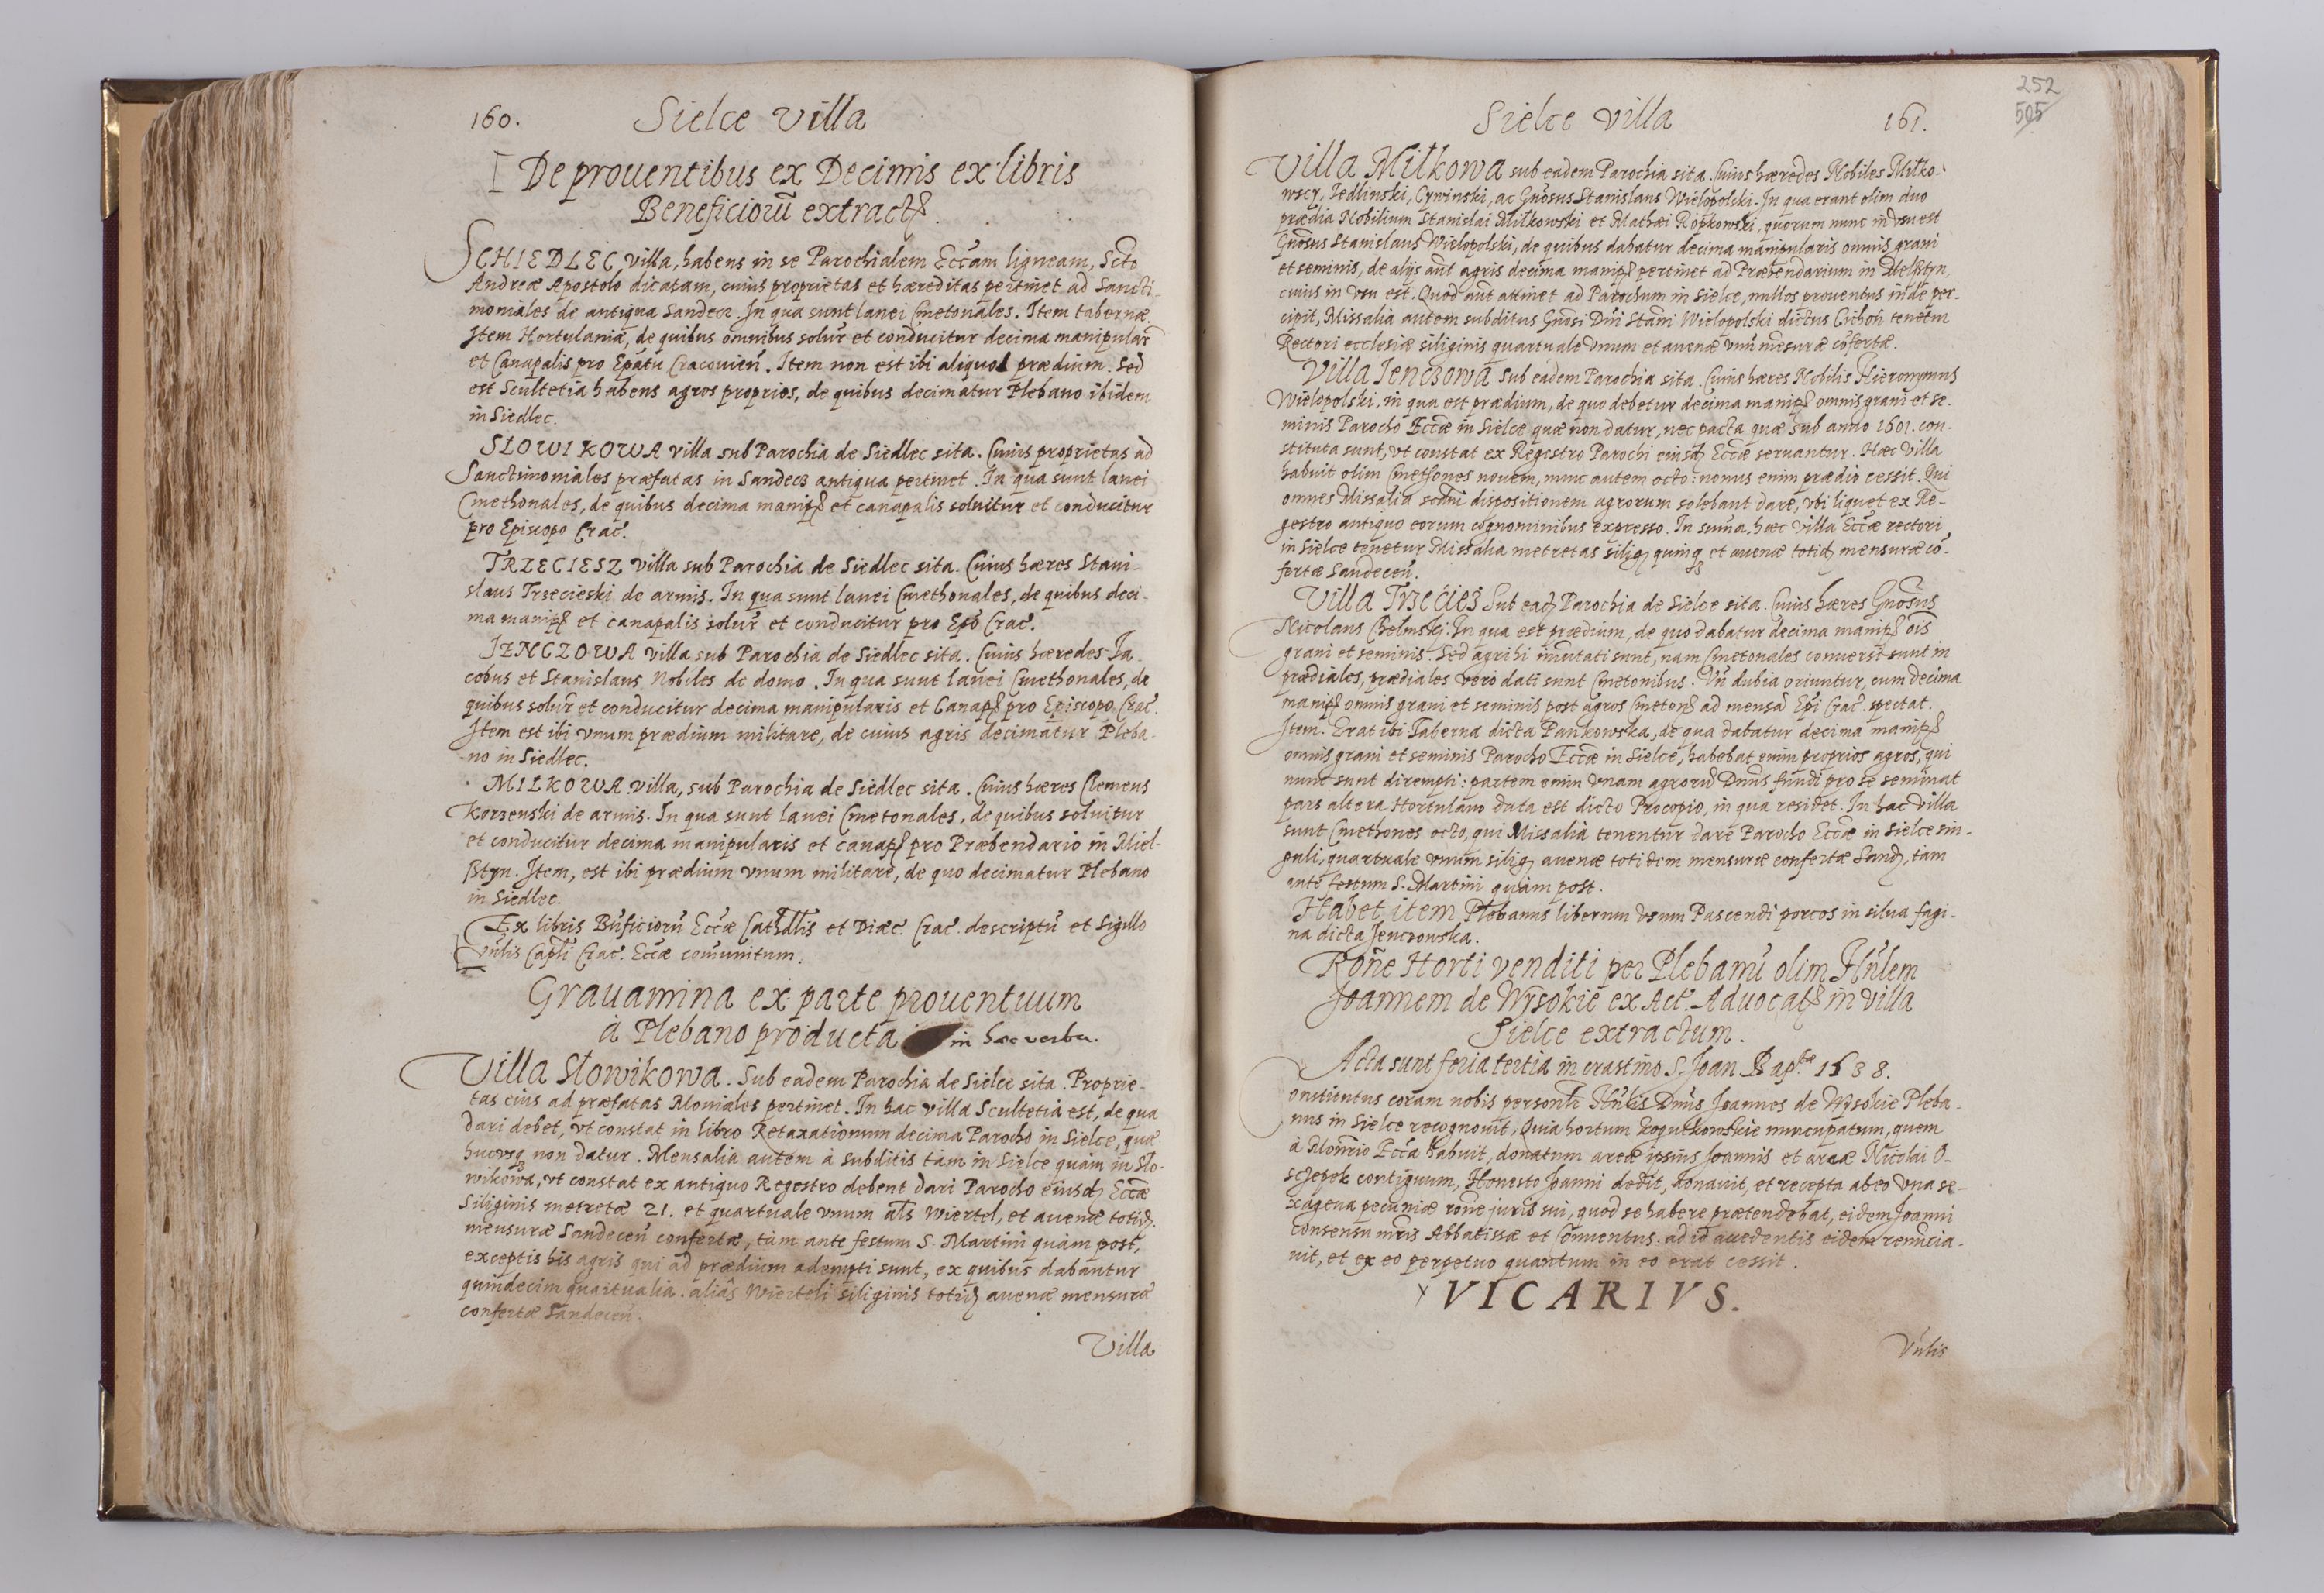 160. Sielce Villa
De prouentibus ex Decimis ex libris
Beneficiorū extract.
SCHIEDLEC villa, habens in se Parochialem Eccam ligneam, Scto
Andreæ Apostolo dicatam, cuius proprietas et hæreditas pertinet ad Sancti-
moniales de antiqua Sandecz. In qua sunt lanei Cmetonales. Item tabernæ.
Item Hortulaniæ, de quibus omnibus solur et conducitur decima manipular
et Canapalis pro Epatu Cracouien. Item non est ibi aliquod prædium. Sed
est Scultetia habens agros proprios, de quibus decimatur Plebano ibidem
in Siedlec.
SŁOWIKOWA villa sub Parochia de Siedlec sita. Cuius proprietas ad
Sanctimoniales præfatas in Sandecz antiqua pertinet. In qua sunt lanei
Cmethonales, de quibus decima manip et canapalis soluitur et conducitur
pro Episcopo Crac.
TRZECIESZ villa sub Parochia de Siedlec sita. Cuius hæres Stani-
slaus Trzecieski de armis. In qua sunt lanei Cmethonales, de quibus deci-
ma manip et canapalis solur et conducitur pro Epo Crac.
JENCZOWA villa sub Parochia de Siedlec sita. Cuius hæredes Ja-
cobus et Stanislaus Nobiles de domo. In qua sunt lanei Cmethonales, de
quibus solur et conducitur decima manipularis et Canap pro Episcopo Crac.
Item est ibi vnum prædium militare, de cuius agris decimatur Pleba-
no in Siedlec.
MIŁKOWA villa, sub Parochia de Siedlec sita. Cuius hæres Clemens
Korzenski de armis. In qua sunt lanei Cmetonales, de quibus soluitur
et conducitur decima manipularis et canap pro Præbendario in Miel-
sztyn. Item, est ibi prædium vnum militare, de quo decimatur Plebano
in Siedlec.
Ex libris Bnficiorū Eccæ Cathdlis et Diæc. Crac. descriptū et Sigillo
Vnlis Capli Crac. Eccæ comunitum.
Grauamina ex parte prouentuum
à Plebano producta in hæc verba.
Villa Słowikowa. Sub eadem Parochia de Sielce sita. Proprie-
tas eius ad præfatas Moniales pertinet. In hac villa Scultetia est, de qua
dari debet, vt constat in libro Retaxationum decima Parocho in Sielce, quæ
hucusq non datur. Mensalia autem à subditis tàm in Sielce quàm in Sło-
wikowa, vt constat ex antiquo Regestro debent dari Parocho eiusd Eccæ
Siliginis metretæ 21. et quartuale vnum als Wiertel, et auenæ totid
mensuræ Sandecen confertæ, tùm ante festum S. Martini quàm post,
exceptis his agris qui ad prædium adempti sunt, ex quibus dabantur
quindecim quartualia. aliàs Wierteli siliginis totid auenæ mensuræ
confertæ Sandecen.
Villa
252
505
Sielce Villa 161.
Villa Miłkowa sub eadem Parochia sita. Cuius hæredes Nobiles Miłko-
wscy, Jedlinski, Cywinski, ac Gnosus Stanislaus Wielopolski. In qua erant olim duo
prædia Nobilium Stanislai Miłkowski et Mathæi Ropkowski, quorum nunc in vsu est
Gnosus Stanislaus Wielopolski, de quibus dabatur decima manipularis omnis grani
et seminis, de alijs aut agris decima manip pertinet ad Præbendarium in Melsztyn,
cuius in vsu est. Quod aut attinet ad Parochum in Sielce, nullos prouentus inde per-
cipit, Missalia autem subditus Gnosi Dni Stani Wielopolski dictus Cichoń tenetur
Rectori ecclesiæ siliginis quartuale vnum et auenæ vnū mensuræ cōfertæ.
Villa Jenczowa sub eadem Parochia sita. Cuius hæres Nobilis Hieronymus
Wielopolski, in qua est prædium, de quo debetur decima manip omnis grani et se-
minis Parocho Eccæ in Sielce quæ non datur, nec pacta quæ sub anno 1601. con-
stituta sunt, vt constat ex Regestro Parochi eiusd Eccæ seruantur. Hæc villa
habuit olim Cmethones nouem, nunc autem octo: nonus enim prædio cessit. Qui
omnes Missalia scdm dispositionem agrorum solebant dare, vbi liquet ex Re-
gestro antiquo eorum cognominibus expresso. In suma hæc villa Eccæ rectori
in Sielce tenetur Missalia metretas silig quinq et auenæ totid mensuræ cō-
fertæ Sandecen.
Villa Trzecież Sub ead Parochia de Sielce sita. Cuius hæres Gnosus
Nicolaus Chełmski. In qua est prædium, de quo dabatur decima manip ois
grani et seminis. Sed agri hi imutati sunt, nam Cmetonales conuersi sunt in
prædiales, prædiales verò dati sunt Cmetonibus. Vn dubia oriuntur, cum decima
manip omnis grani et seminis post agros Cmeton ad mensā Epi Crac. spectat.
Item. Erat ibi Taberna dicta Pankowska, de qua dabatur decima manip
omnis grani et seminis Parocho Eccæ in Sielce, habebat enim proprios agros, qui
nunc sunt dirempti: partem enim vnam agrorū Dnus fundi pro se seminat
pars altera Hortulano data est dicto Procopio, in qua residet. In hac villa
sunt Cmethones octo, qui Missalia tenentur dare Parocho Eccæ in Sielce sin-
guli, quartuale vnum silig auenæ totidem mensuræ confertæ Sand, tam
ante festum S. Martini quàm post.
Habet item Plebanus liberum vsum Pascendi porcos in silua fagi-
na dicta Jenczowska.
Rōne Horti venditi per Plebanū olim Hnlem
Joannem de Wysokie ex Act. Aduocat in villa
Sielce extractum.
Acta sunt feria tertia in crastino S. Joan. Bap. 1638.
onstitutus coram nobis personlr Hnlis Dnus Joannes de Wysokie Pleba-
nus in Sielce recognouit, Quia hortum Kogutkowskie nuncupatum, quem
à Monrio Ecca habuit, donatum areæ ipsius Joannis et areæ Nicolai O-
sczepek contiguum, Honesto Joanni dedit, donauit, et recepta ab eo vna se-
xagena pecuniæ rōne juris sui, quod se habere prætendebat, eidem Joanni
consensu mris Abbatissæ et Conuentus ad id accedentis eidem renuncia-
uit, et ex eo perpetuo quantum in eo erat cessit.
VICARIVS.
Vnlis